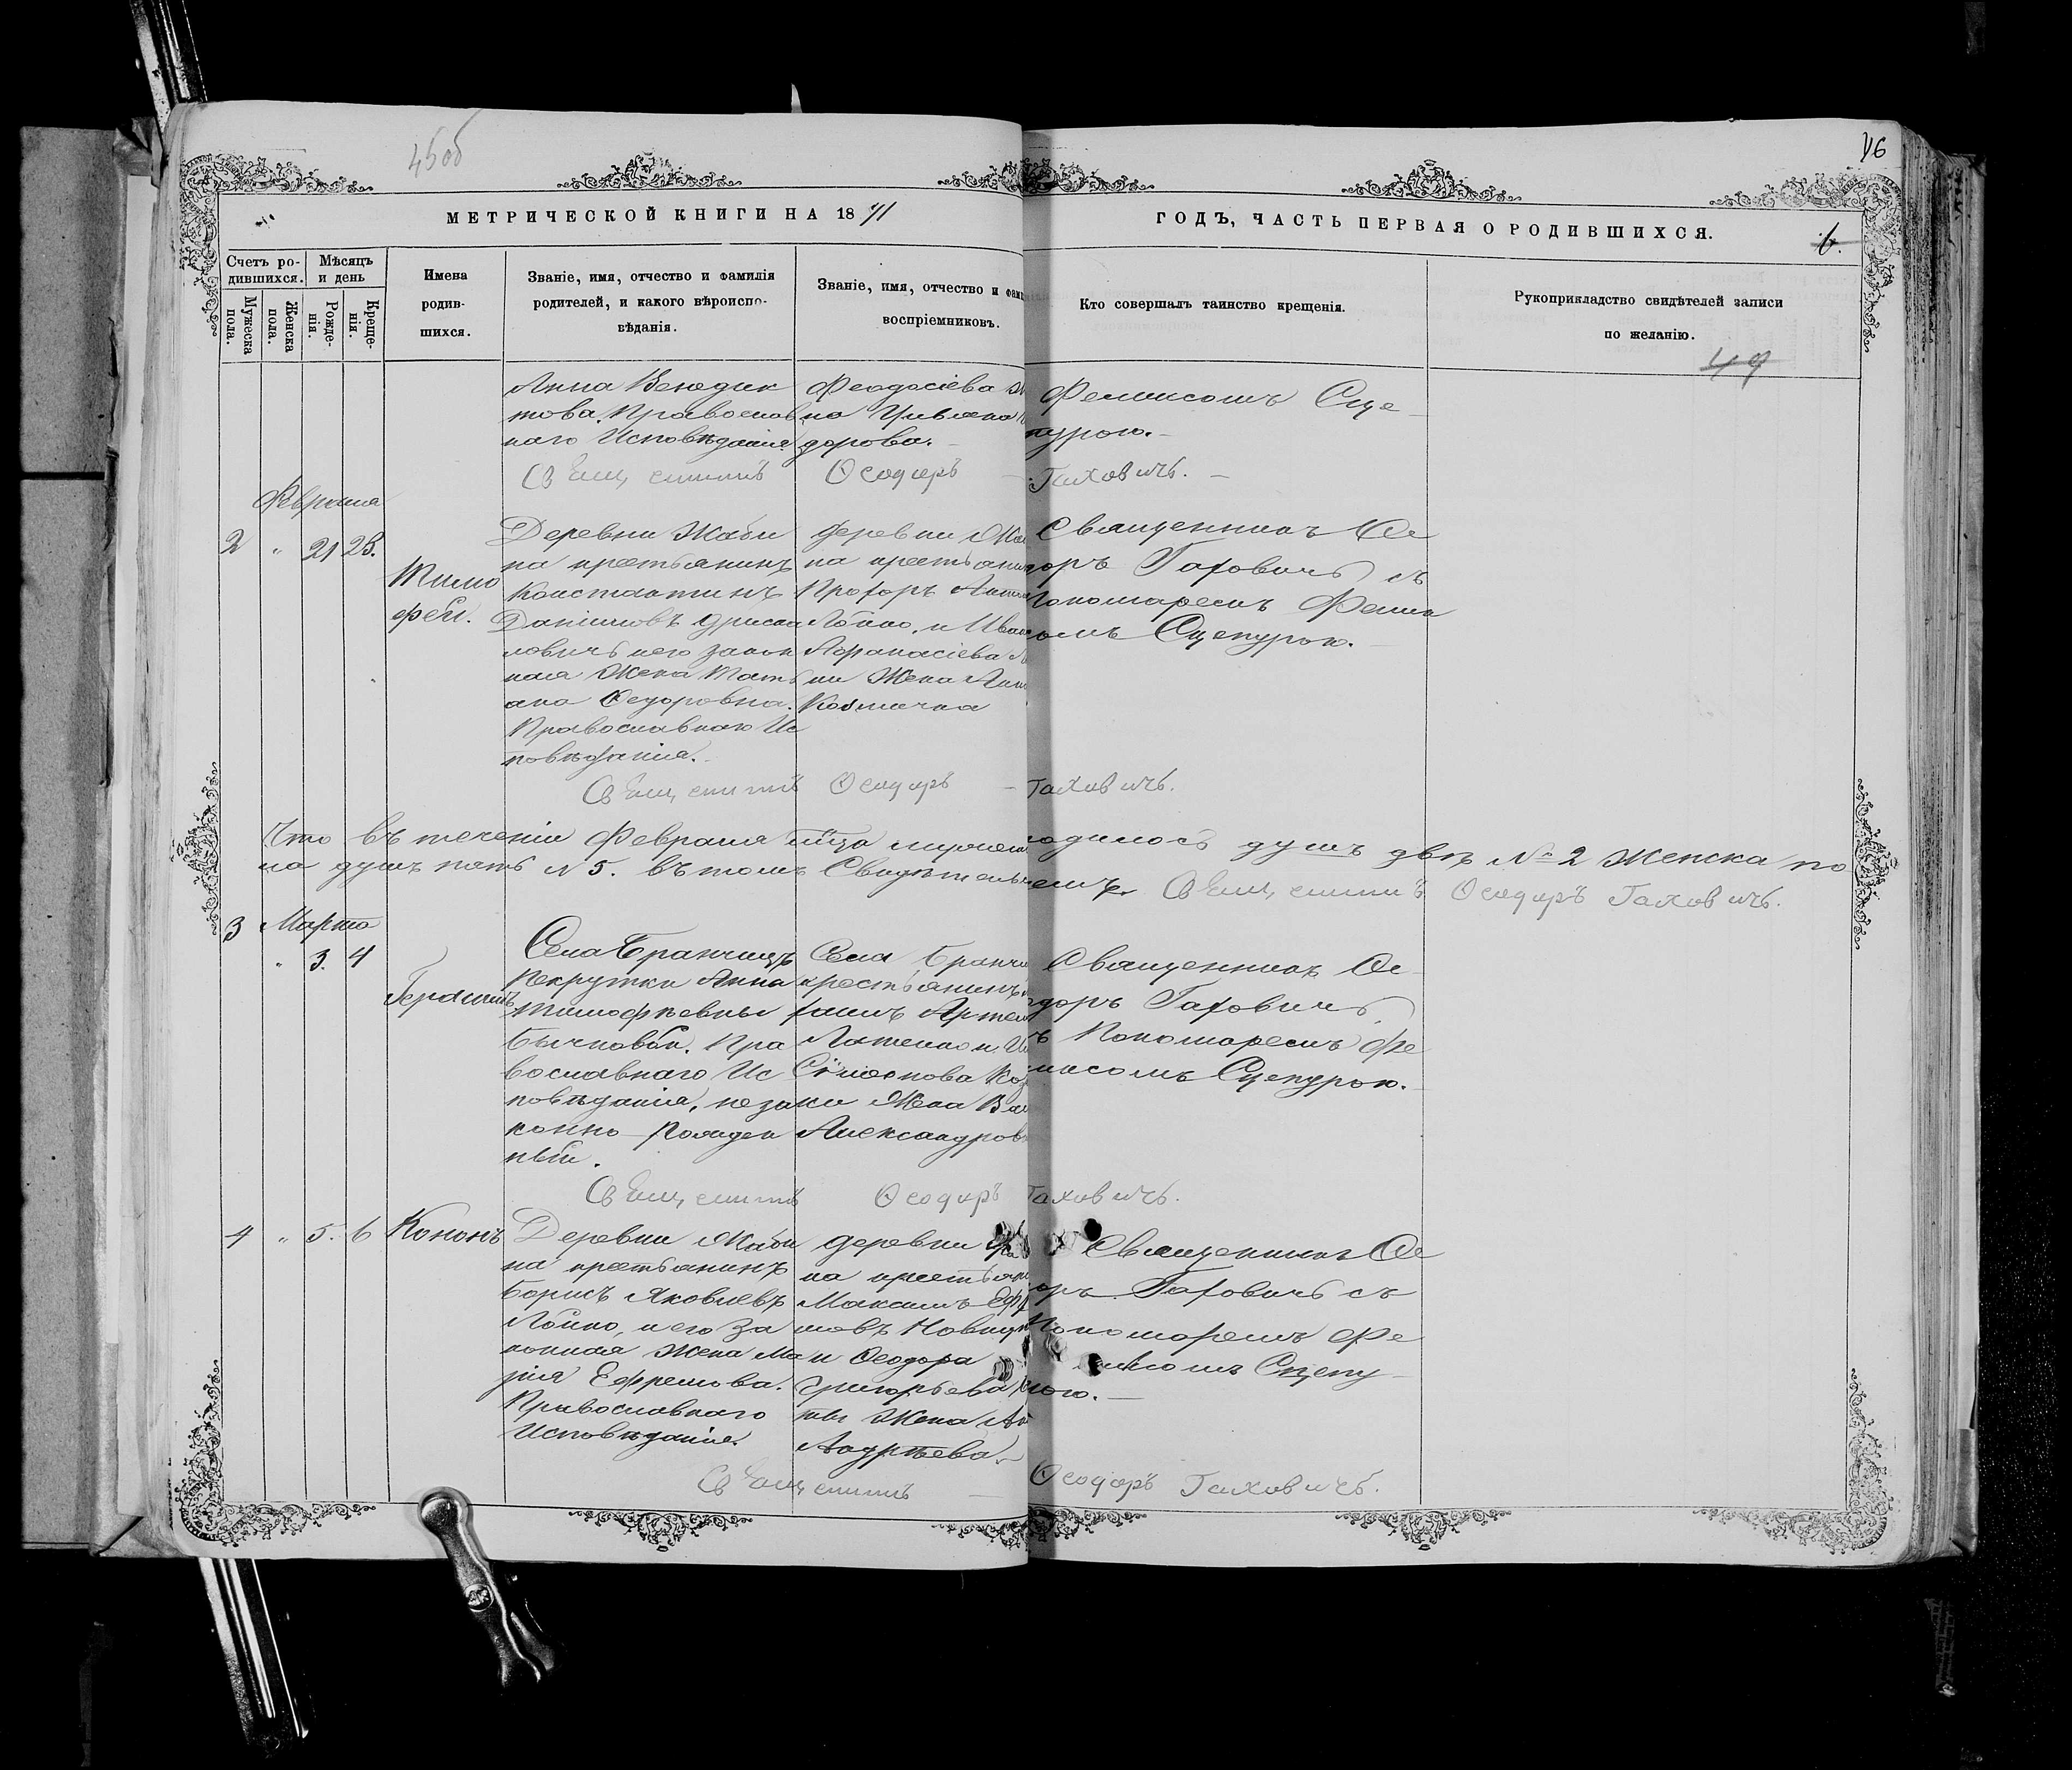 45об
46
МЕТРИЧЕСКОЙ КНИГИ НА 1871
ГОДЪ, ЧАСТЬ ПЕРВАЯ О РОДИВШИХСЯ.
6.
Счетъ ро-
дившихся.
Мужеска
пола.
Женска
пола.
Мѣсяцъ
и день
Рожде-
нія.
Креще-
нія.
Имена
родив-
шихся.
Званіе, имя, отчество и фамилія
родителей, и какого вѣроиспо-
вѣданія.
Званіе, имя, отчество и фам
воспріемниковъ.
Кто совершалъ таинство крещенія.
Рукоприкладство свидѣтелей записи
по желанію.
49
Анна Венедик
това, Православ
наго Исповѣданія.
Феодосіева
на Ульяна
дорова.
Феликсомъ Сце-
пурою.
Священникъ Ѳеодоръ Гаховичъ.
Февраля
2 " 21 23.
Тимо
фей.
Деревни Жаби
на крестьянинъ
Константинъ
Даниловъ
ловичъ и его закон
ная Жена Тать
яна Ѳедоровна.
Православнаго Ис
повѣданія.
Деревни Жа
на крестьянин
Прохоръ
Лойко, и
Афанасіева
ни Жена
Козмична
Священникъ Ѳе
оръ Гаховичъ съ
Пономаремъ Фелик
омъ Сцепурою.
Священникъ Ѳеодоръ Гаховичъ.
Что въ теченіи Февраля м‑ца мужеск одилось душъ двѣ № 2 Женска по
ла душъ пять № 5. въ томъ Свидѣтельс емъ. Священникъ Ѳеодоръ Гаховичъ.
3 Марта
" 3. 4
Герасимъ
Села Бранчицъ
Рекрутки Анна
Тимофѣевны
Бычковой. Пра
вославнаго Ис
повѣданія, неза
конно-рожден
ный.
Села Бранчи
крестьянинъ
Артем
и
Сімеонова
Жена
Александров
Священникъ Ѳе
одоръ Гаховичъ
ъ Пономаремъ Фе
ликсомъ Сцепурою.
Священникъ Ѳеодоръ Гаховичъ.
4 " 5. 6 Кононъ
Деревни Жаби
на крестьянинъ
Борисъ Яковлевъ
Лойко, и его За
конная Жена Ма
рія Ефремова.
Православнаго
Исповѣданія.
Деревни
на крестьян
Максимъ
мовъ
и Ѳеодора
Григорьева
Жена
Андрѣева.
Священникъ Ѳе
оръ Гаховичъ съ
Пономаремъ Фе
ликсомъ Сцепу-
рою.
Священникъ Ѳеодоръ Гаховичъ.